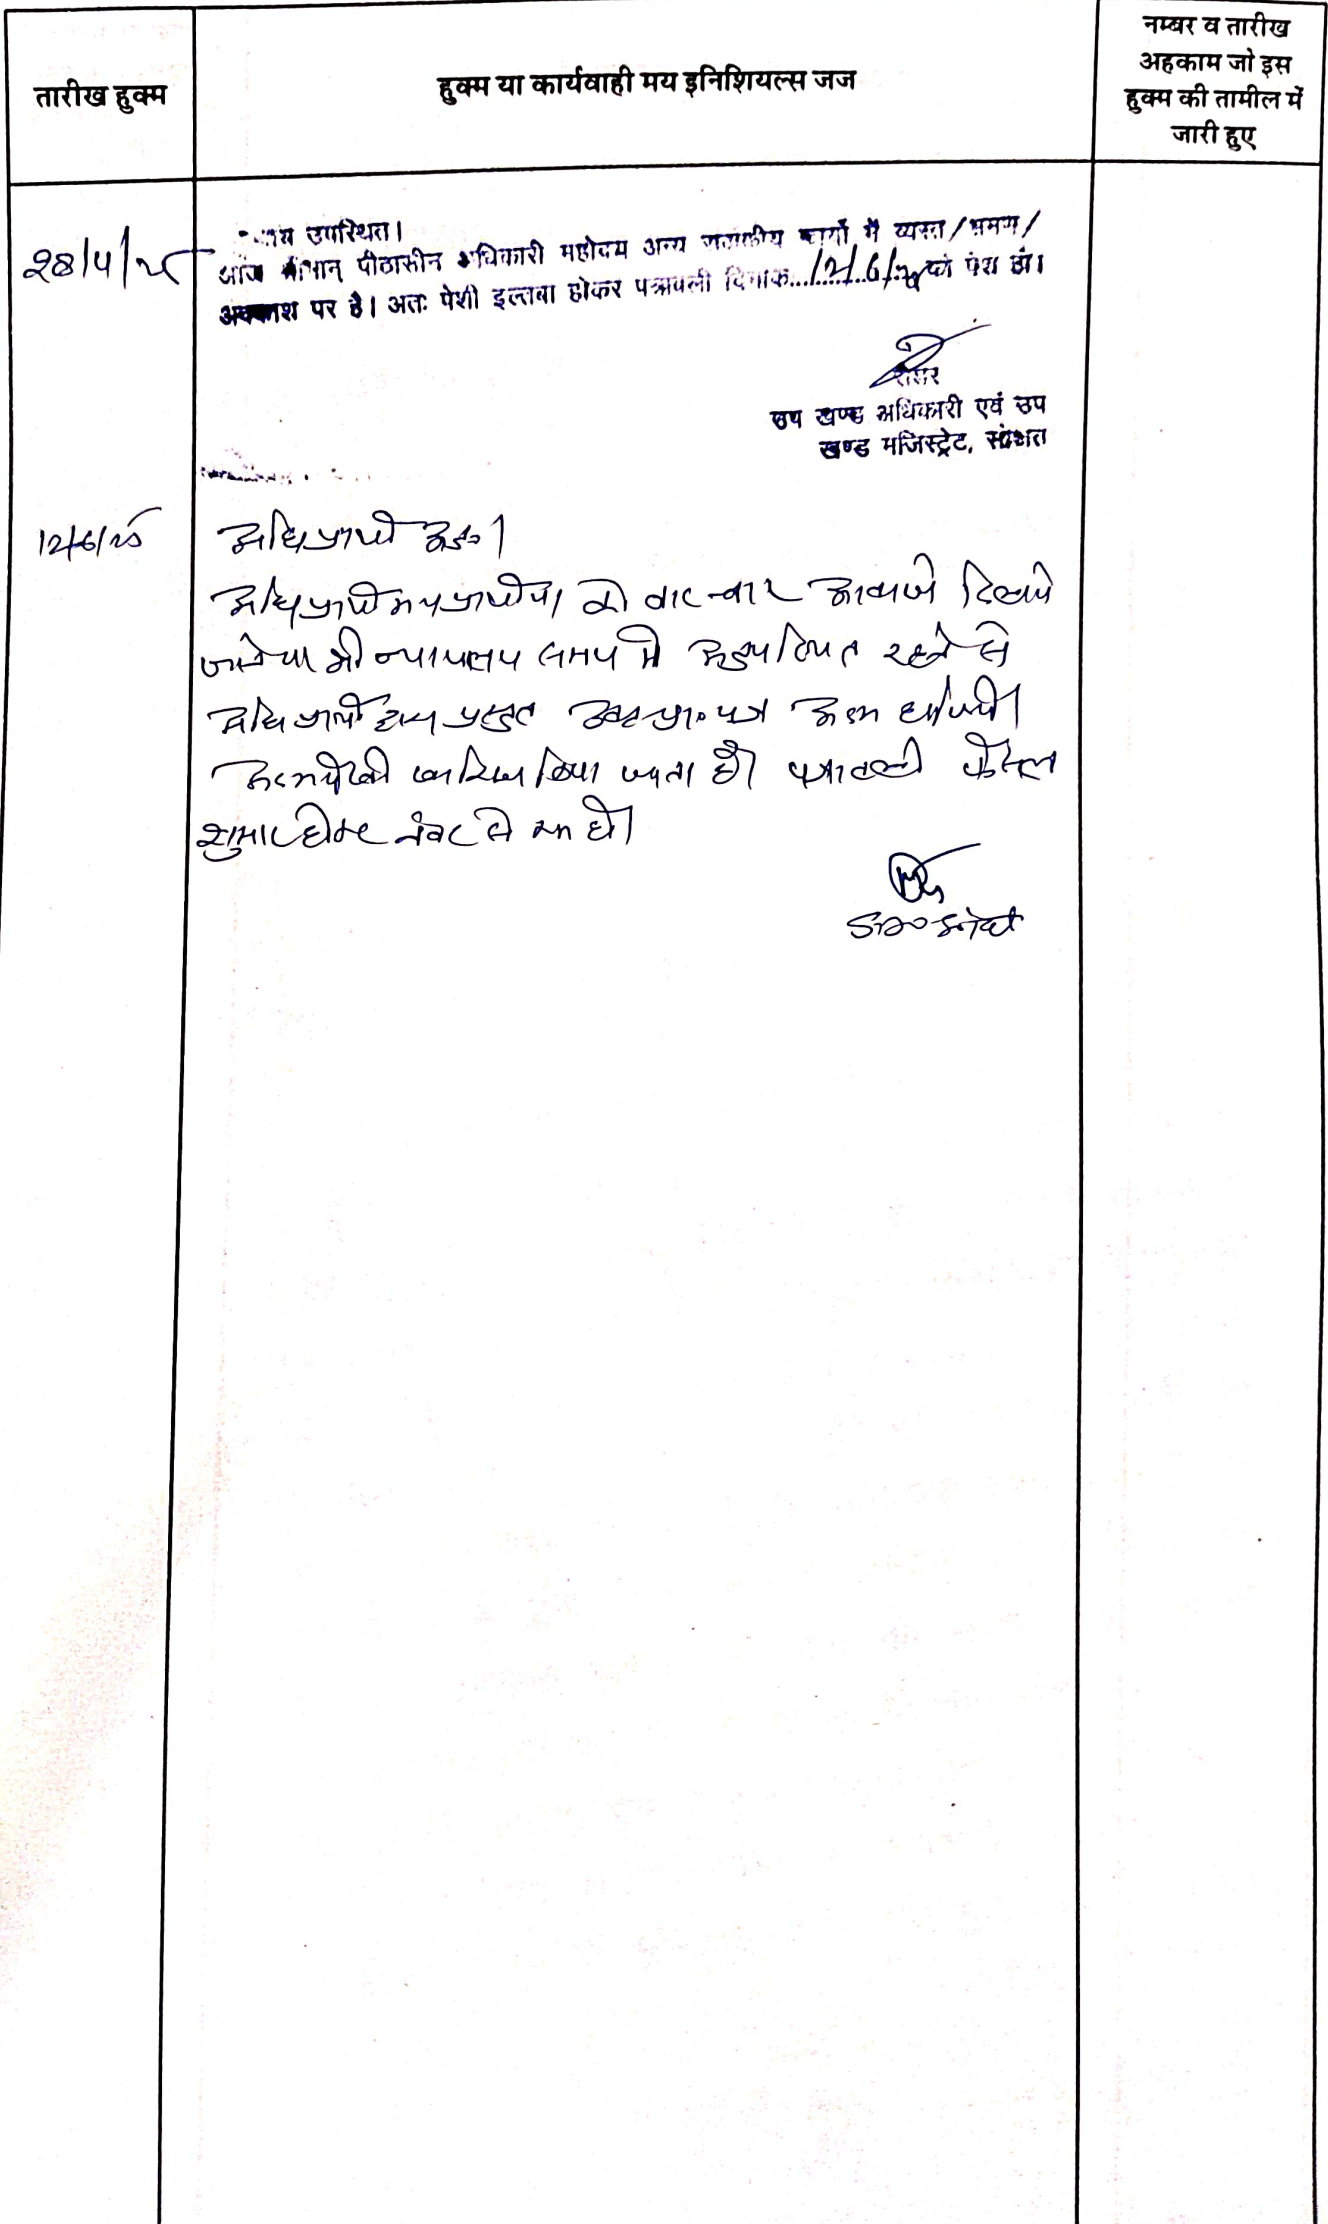 तारीख हुक्म
हुक्म या कार्यवाही मय इनिशियल्स जज
नम्बर व तारीख
अहकाम जो इस
हुक्म की तामील में
जारी हुए
उपस्थित।
28/4/25
आज श्रीमान् पीठासीन अधिकारी महोदय अन्य राजकीय कार्यो में व्यस्त/भ्रमण/
अवकाश पर है। अतः पेशी इल्तवा होकर पत्रावली दिनांक...12/6/25 को पेश हो।
रीडर
उप खण्ड अधिकारी एवं उप
खण्ड मजिस्ट्रेट, सोजत
12/6/25
अधि प्रार्थी अनु०।
अधि प्रार्थी मय प्रार्थीया को बार-बार आवाजे दिलाये
जाने पर भी न्यायालय समय में अनुपस्थित रहने से
अधि प्रार्थी द्वारा प्रस्तुत प्रा० पत्र अदम हाजरी
अदम पैरवी खारिज किया जाता है। पत्रावली फैसल
शुमार होकर नंबर से कम हो।